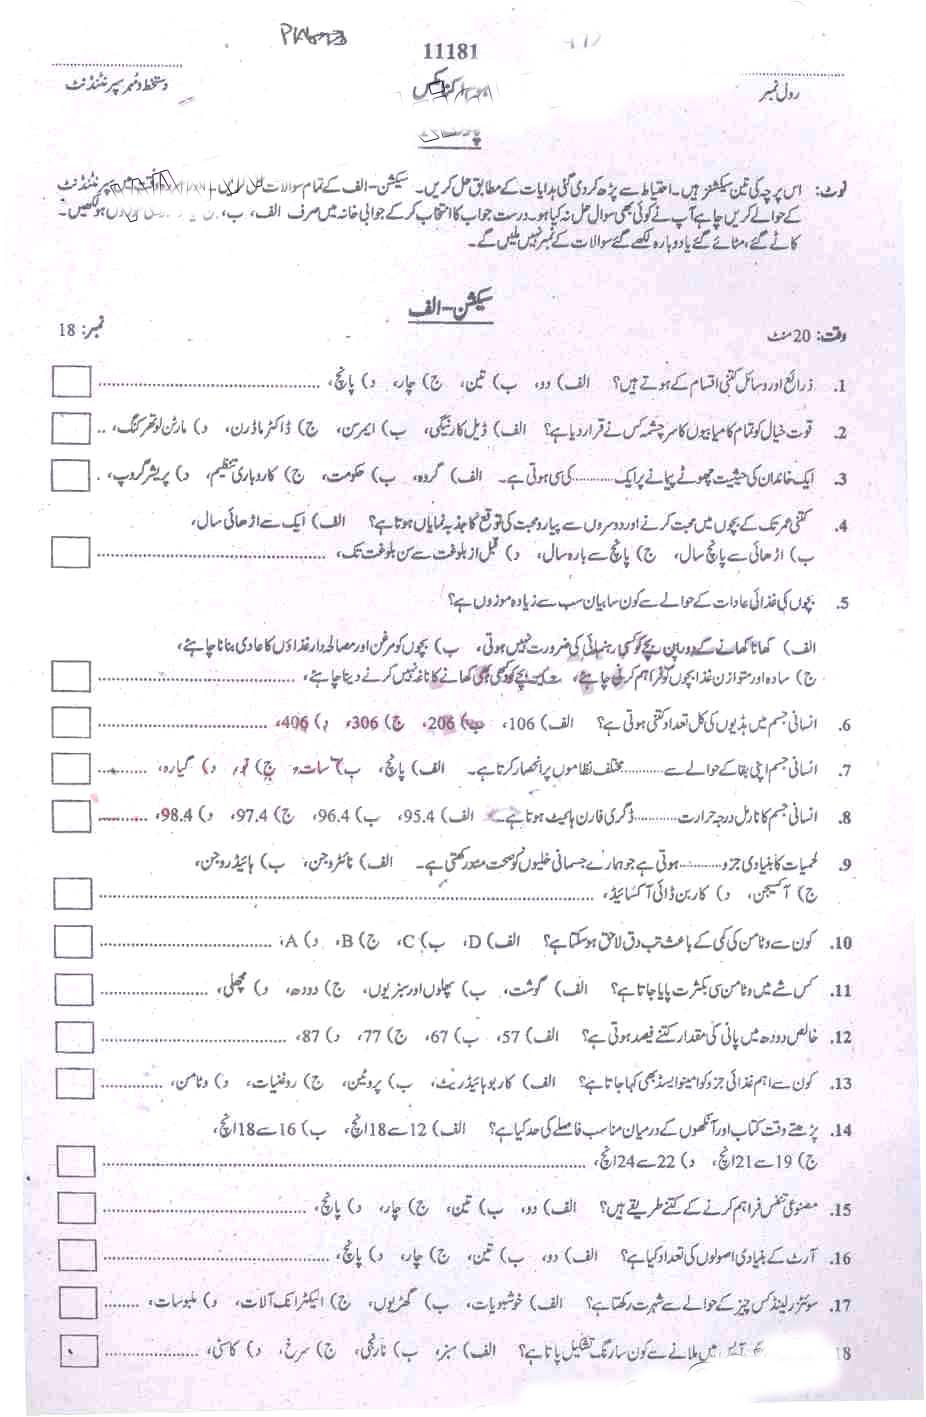 11181
رول نمبر
دستخط و مہر سپرنٹنڈنٹ
نوٹ: اس پرچہ کی تین سیکشنز ہیں۔ احتیاط سے پڑھ کر دی گئی ہدایات کے مطابق حل کریں۔ سیکشن-الف کے تمام سوالات سپرنٹنڈنٹ
کے حوالے کریں چاہے آپ نے کوئی بھی سوال حل نہ کیا ہو۔ درست جواب کا انتخاب کر کے جوابی خانہ میں صرف الف، ب، لکھیں۔
کاٹے گئے، مٹائے گئے یا دوبارہ لکھے گئے سوالات کے نمبر نہیں ملیں گے۔
سیکشن-الف
وقت: 20 منٹ
نمبر: 18
1. ذرائع اور وسائل کتنی اقسام کے ہوتے ہیں؟ الف) دو، ب) تین، ج) چار، د) پانچ،
2. قوت خیال کو تمام کامیابیوں کا سرچشمہ کس نے قرار دیا ہے؟ الف) ڈیل کارنیگی، ب) ایمرسن، ج) ڈاکٹر ماڈرن، د) مارٹن لوتھر کنگ،
3. ایک خاندان کی حیثیت چھوٹے پیمانے پر ایک ............ کی سی ہوتی ہے۔ الف) گروہ، ب) حکومت، ج) کاروباری تنظیم، د) پریشر گروپ،
4. کتنی عمر تک کے بچوں میں محبت کرنے اور دوسروں سے پیار و محبت کی توقع کا جذبہ نمایاں ہوتا ہے؟ الف) ایک سے اڑھائی سال،
ب) اڑھائی سے پانچ سال، ج) پانچ سے بارہ سال، د) قبل از بلوغت سے سن بلوغت تک،
5. بچوں کی غذائی عادات کے حوالے سے کون سا بیان سب سے زیادہ موزوں ہے؟
الف) کھانا کھانے کے دوران بچے کو کسی رہنمائی کی ضرورت نہیں ہوتی، ب) بچوں کو مرغن اور مصالحہ دار غذاؤں کا عادی بنانا چاہئے،
ج) سادہ اور متوازن غذا بچوں کو فراہم کرنی چاہئے، بچے کو کبھی بھی کھانے کا ناغہ نہیں کرنے دینا چاہئے،
6. انسانی جسم میں ہڈیوں کی کل تعداد کتنی ہوتی ہے؟ الف) 106، ب) 206، ج) 306، د) 406،
7. انسانی جسم اپنی بقا کے حوالے سے ............ مختلف نظاموں پر انحصار کرتا ہے۔ الف) پانچ، ب) سات، ج) نو، د) گیارہ،
8. انسانی جسم کا نارمل درجہ حرارت ............ ڈگری فارن ہائیٹ ہوتا ہے۔ الف) 95.4، ب) 96.4، ج) 97.4، د) 98.4،
9. لحمیات کا بنیادی جزو ............ ہوتی ہے جو ہمارے جسمانی خلیوں کو صحت مند رکھتی ہے۔ الف) نائٹروجن، ب) ہائیڈروجن،
ج) آکسیجن، د) کاربن ڈائی آکسائیڈ،
10. کون سے وٹامن کی کمی کے باعث تپ دق لاحق ہو سکتا ہے؟ الف) D، ب) C، ج) B، د) A،
11. کس شے میں وٹامن سی بکثرت پایا جاتا ہے؟ الف) گوشت، ب) پھلوں اور سبزیوں، ج) دودھ، د) مچھلی،
12. خالص دودھ میں پانی کی مقدار کتنے فیصد ہوتی ہے؟ الف) 57، ب) 67، ج) 77، د) 87،
13. کون سے اہم غذائی جزو کو امینو ایسڈ بھی کہا جاتا ہے؟ الف) کاربوہائیڈریٹ، ب) پروٹین، ج) روغنیات، د) وٹامن،
14. پڑھتے وقت کتاب اور آنکھوں کے درمیان مناسب فاصلے کی حد کیا ہے؟ الف) 12 سے 18 انچ، ب) 16 سے 18 انچ،
ج) 19 سے 21 انچ، د) 22 سے 24 انچ،
15. مصنوعی تنفس فراہم کرنے کے کتنے طریقے ہیں؟ الف) دو، ب) تین، ج) چار، د) پانچ،
16. آرٹ کے بنیادی اصولوں کی تعداد کیا ہے؟ الف) دو، ب) تین، ج) چار، د) پانچ،
17. سوئٹزرلینڈ کس چیز کے حوالے سے شہرت رکھتا ہے؟ الف) خوشبویات، ب) گھڑیوں، ج) الیکٹرانک آلات، د) ملبوسات،
18 میں ملانے سے کون سا رنگ تشکیل پاتا ہے؟ الف) سبز، ب) نارنجی، ج) سرخ، د) کاسنی،